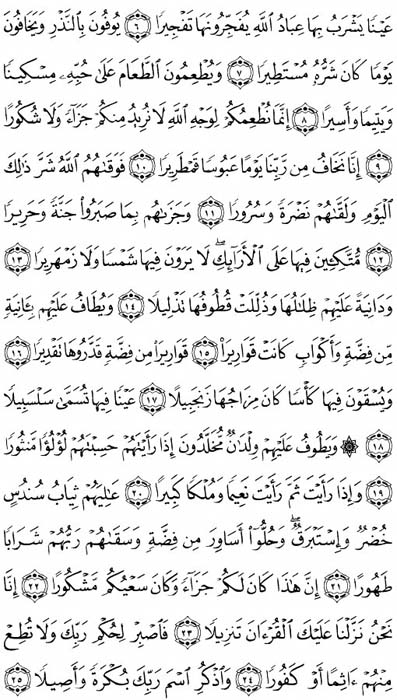 عَيۡنٗا يَشۡرَبُ بِهَا عِبَادُ ٱللَّهِ يُفَجِّرُونَهَا تَفۡجِيرٗا ٦ يُوفُونَ بِٱلنَّذۡرِ وَيَخَافُونَ
يَوۡمٗا كَانَ شَرُّهُۥ مُسۡتَطِيرٗا ٧ وَيُطۡعِمُونَ ٱلطَّعَامَ عَلَىٰ حُبِّهِۦ مِسۡكِينٗا
وَيَتِيمٗا وَأَسِيرًا ٨ إِنَّمَا نُطۡعِمُكُمۡ لِوَجۡهِ ٱللَّهِ لَا نُرِيدُ مِنكُمۡ جَزَآءٗ وَلَا شُكُورًا
٩ إِنَّا نَخَافُ مِن رَّبِّنَا يَوۡمًا عَبُوسٗا قَمۡطَرِيرٗا ١٠ فَوَقَىٰهُمُ ٱللَّهُ شَرَّ ذَٰلِكَ
ٱلۡيَوۡمِ وَلَقَّىٰهُمۡ نَضۡرَةٗ وَسُرُورٗا ١١ وَجَزَىٰهُم بِمَا صَبَرُواْ جَنَّةٗ وَحَرِيرٗا
١٢ مُّتَّكِـِٔينَ فِيهَا عَلَى ٱلۡأَرَآئِكِۖ لَا يَرَوۡنَ فِيهَا شَمۡسٗا وَلَا زَمۡهَرِيرٗا ١٣
وَدَانِيَةً عَلَيۡهِمۡ ظِلَٰلُهَا وَذُلِّلَتۡ قُطُوفُهَا تَذۡلِيلٗا ١٤ وَيُطَافُ عَلَيۡهِم بِـَٔانِيَةٖ
مِّن فِضَّةٖ وَأَكۡوَابٖ كَانَتۡ قَوَارِيرَا۠ ١٥ قَوَارِيرَاْ مِن فِضَّةٖ قَدَّرُوهَا تَقۡدِيرٗا ١٦
وَيُسۡقَوۡنَ فِيهَا كَأۡسٗا كَانَ مِزَاجُهَا زَنجَبِيلًا ١٧ عَيۡنٗا فِيهَا تُسَمَّىٰ سَلۡسَبِيلٗا
١٨ ۞ وَيَطُوفُ عَلَيۡهِمۡ وِلۡدَٰنٞ مُّخَلَّدُونَ إِذَا رَأَيۡتَهُمۡ حَسِبۡتَهُمۡ لُؤۡلُؤٗا مَّنثُورٗا
١٩ وَإِذَا رَأَيۡتَ ثَمَّ رَأَيۡتَ نَعِيمٗا وَمُلۡكٗا كَبِيرًا ٢٠ عَٰلِيَهُمۡ ثِيَابُ سُندُسٍ
خُضۡرٞ وَإِسۡتَبۡرَقٞۖ وَحُلُّوٓاْ أَسَاوِرَ مِن فِضَّةٖ وَسَقَىٰهُمۡ رَبُّهُمۡ شَرَابٗا
طَهُورًا ٢١ إِنَّ هَٰذَا كَانَ لَكُمۡ جَزَآءٗ وَكَانَ سَعۡيُكُم مَّشۡكُورًا ٢٢ إِنَّا
نَحۡنُ نَزَّلۡنَا عَلَيۡكَ ٱلۡقُرۡءَانَ تَنزِيلٗا ٢٣ فَٱصۡبِرۡ لِحُكۡمِ رَبِّكَ وَلَا تُطِعۡ
مِنۡهُمۡ ءَاثِمًا أَوۡ كَفُورٗا ٢٤ وَٱذۡكُرِ ٱسۡمَ رَبِّكَ بُكۡرَةٗ وَأَصِيلٗا ٢٥